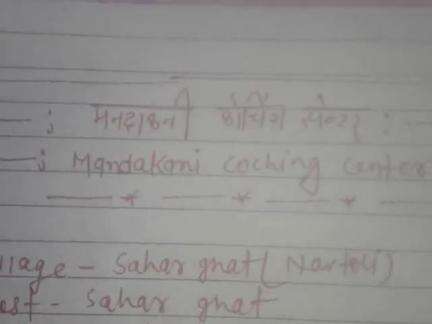 —; मनदाकनी कोचिंग सेन्टर :—
—; Mandakani coching center
—— * —— * —— * —
llage - Sahar ghat ( Nartoli)
ost - Sahar ghat